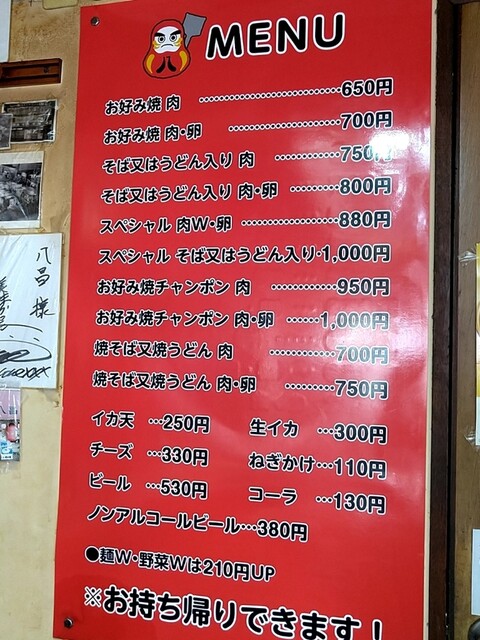 MENU
お好み焼 肉 …………………………650円
お好み焼 肉・卵 …………………700円
そば又はうどん入り 肉 …………750円
そば又はうどん入り 肉・卵 ………800円
スペシャル 肉W・卵 ………………880円
スペシャル そば又はうどん入り・1,000円
お好み焼チャンポン 肉 …………950円
お好み焼チャンポン 肉・卵 ……1,000円
焼そば又焼うどん 肉 …………700円
焼そば又焼うどん 肉・卵 ………750円
イカ天 …250円 生イカ …300円
チーズ …330円 ねぎかけ…110円
ビール …530円 コーラ …130円
ノンアルコールビール…380円
●麺W・野菜Wは210円UP
※お持ち帰りできます!
八昌 様